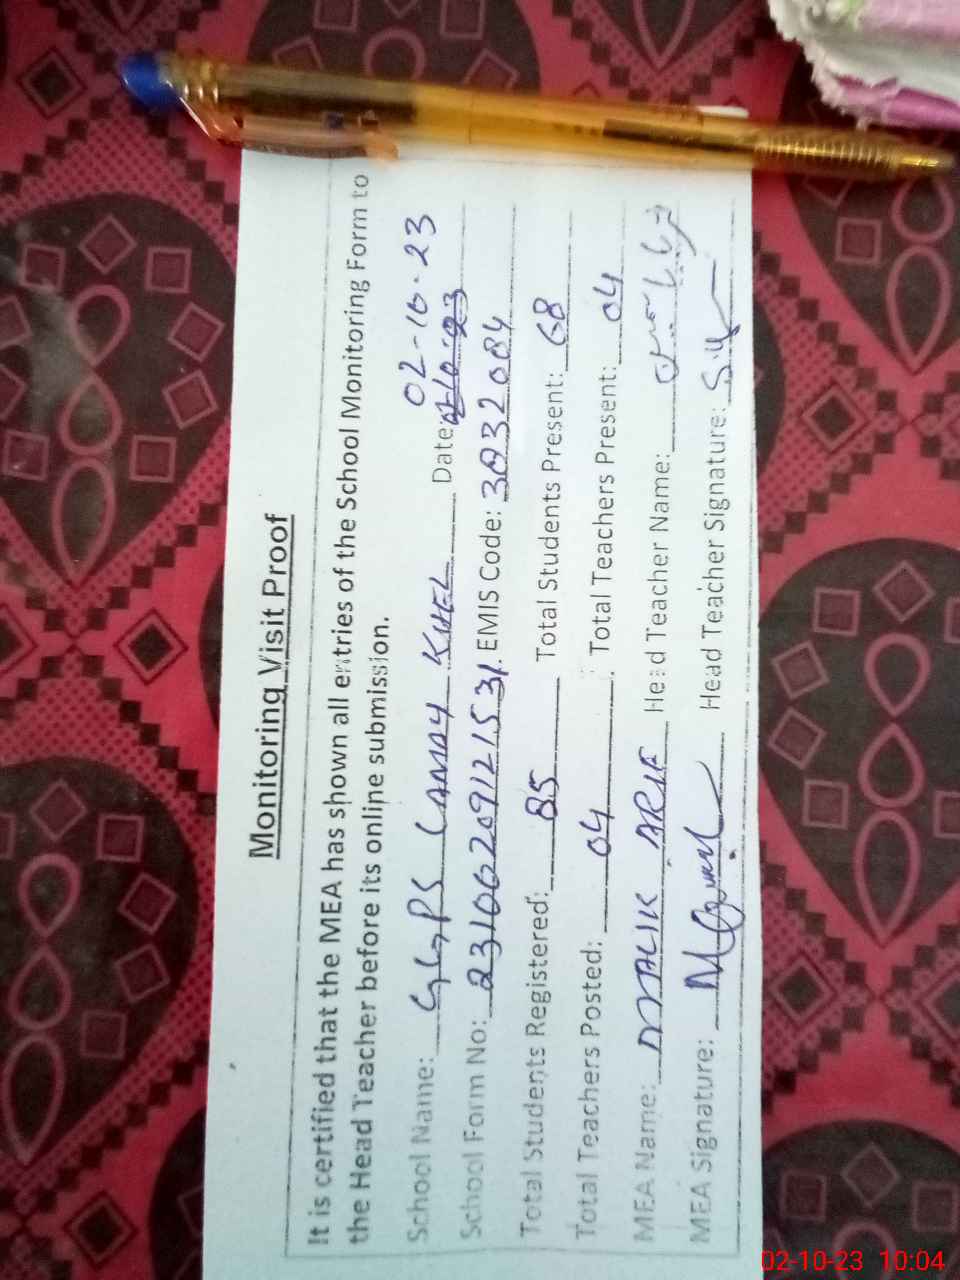 Monitoring Visit Proof
It is certified that the MEA has shown all entries of the School Monitoring Form to
the Head Teacher before its online submission.
School Name: GGPS Landy KHEL Date: 02-10-23
School Form No: 2310620912153 EMIS Code: 30932084
Total Students Registered: 85 Total Students Present: 68
Total Teachers Posted: 04 Total Teachers Present: 04
MEA Name: MALIK ARIF Head Teacher Name:
MEA Signature: Head Teacher Signature:
02-10-23 10:04